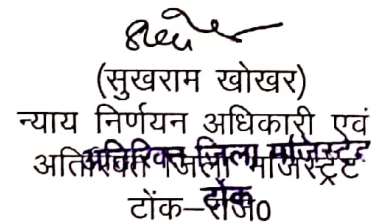 (सुखराम खोखर)
न्याय निर्णयन अधिकारी एवं
अतिरिक्त जिला मजिस्ट्रेट
अतिरिक्त जिला मजिस्ट्रेट
टोंक
टोंक–राज0